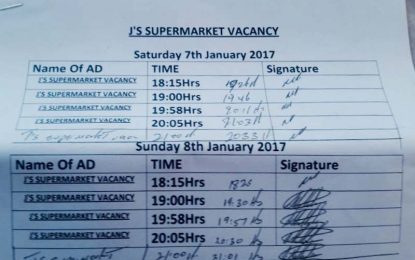 J'S SUPERMARKET VACANCY
Saturday 7th January 2017
Name Of AD TIME Signature
J'S SUPERMARKET VACANCY 18:15Hrs
J'S SUPERMARKET VACANCY 19:00Hrs 1946
J'S SUPERMARKET VACANCY 19:58Hrs
J'S SUPERMARKET VACANCY 20:05Hrs
J's supermarket vacan 21:00H 2033H
Sunday 8th January 2017
Name Of AD TIME Signature
J'S SUPERMARKET VACANCY 18:15Hrs
J'S SUPERMARKET VACANCY 19:00Hrs 19:30Hs
J'S SUPERMARKET VACANCY 19:58Hrs 19:57Hs
J'S SUPERMARKET VACANCY 20:05Hrs 20:30Hs
21:00H 21:01Hs